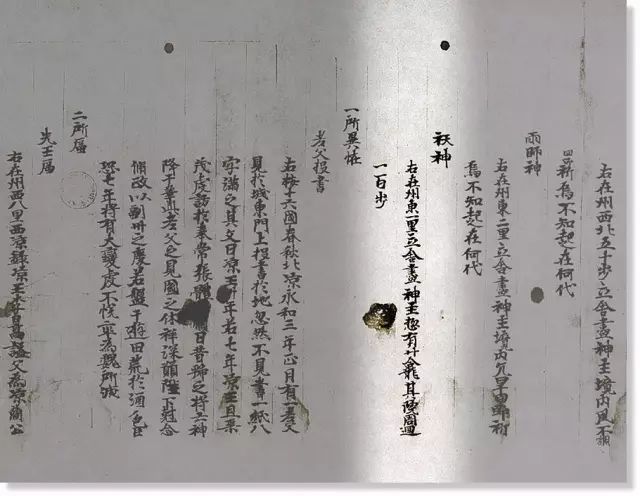 右在州西北五十步立舍畫神主境內風不調
因即祈焉不知起在何代
雨師神
右在州東二里立舍畫神主境內亢旱因即祈
焉不知起在何代
祆神
右在州東一里立舍畫神主總有廿龕其院周迴
一百步
一所異怪
老父投書
右按十六國春秋北涼永和三年正月有老父
見於城東門上投書於地忽然不見書一紙八
字滿之其文曰涼王卅年若七年涼王且渠
茂虔訪於奉常張體曰昔虢之將亡神
降于莘此老父之見國之休祥深願陛下剋念
脩政以副卅之慶若盤于遊田荒於酒色臣
恐七年將有大變虔不悅卒為魏所滅
二所廟
先王廟
右在州西八里西涼錄涼王李暠謚父為涼簡公